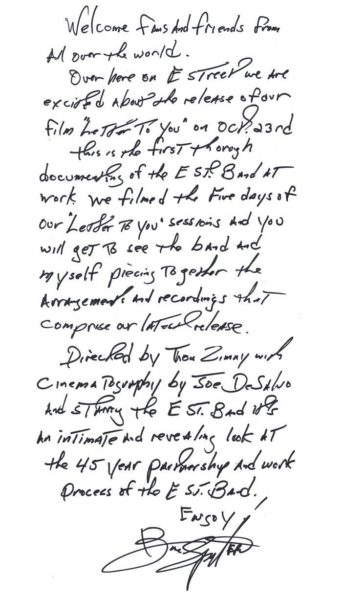 Welcome fans and friends from
all over the world.
Over here on E Street we are
excited about the release of our
film "Letter To You" on Oct. 23rd
this is the first thorough
documenting of the E St. Band at
work. We filmed the five days of
our "Letter To You" sessions and you
will get to see the band and
myself piecing together the
arrangements and recordings that
comprise our latest release.
Directed by Thom Zimny with
cinematography by Joe DeSalvo
and starring the E St. Band it's
an intimate and revealing look at
the 45 year partnership and work
process of the E St. Band.
Enjoy!
Bruce Springsteen